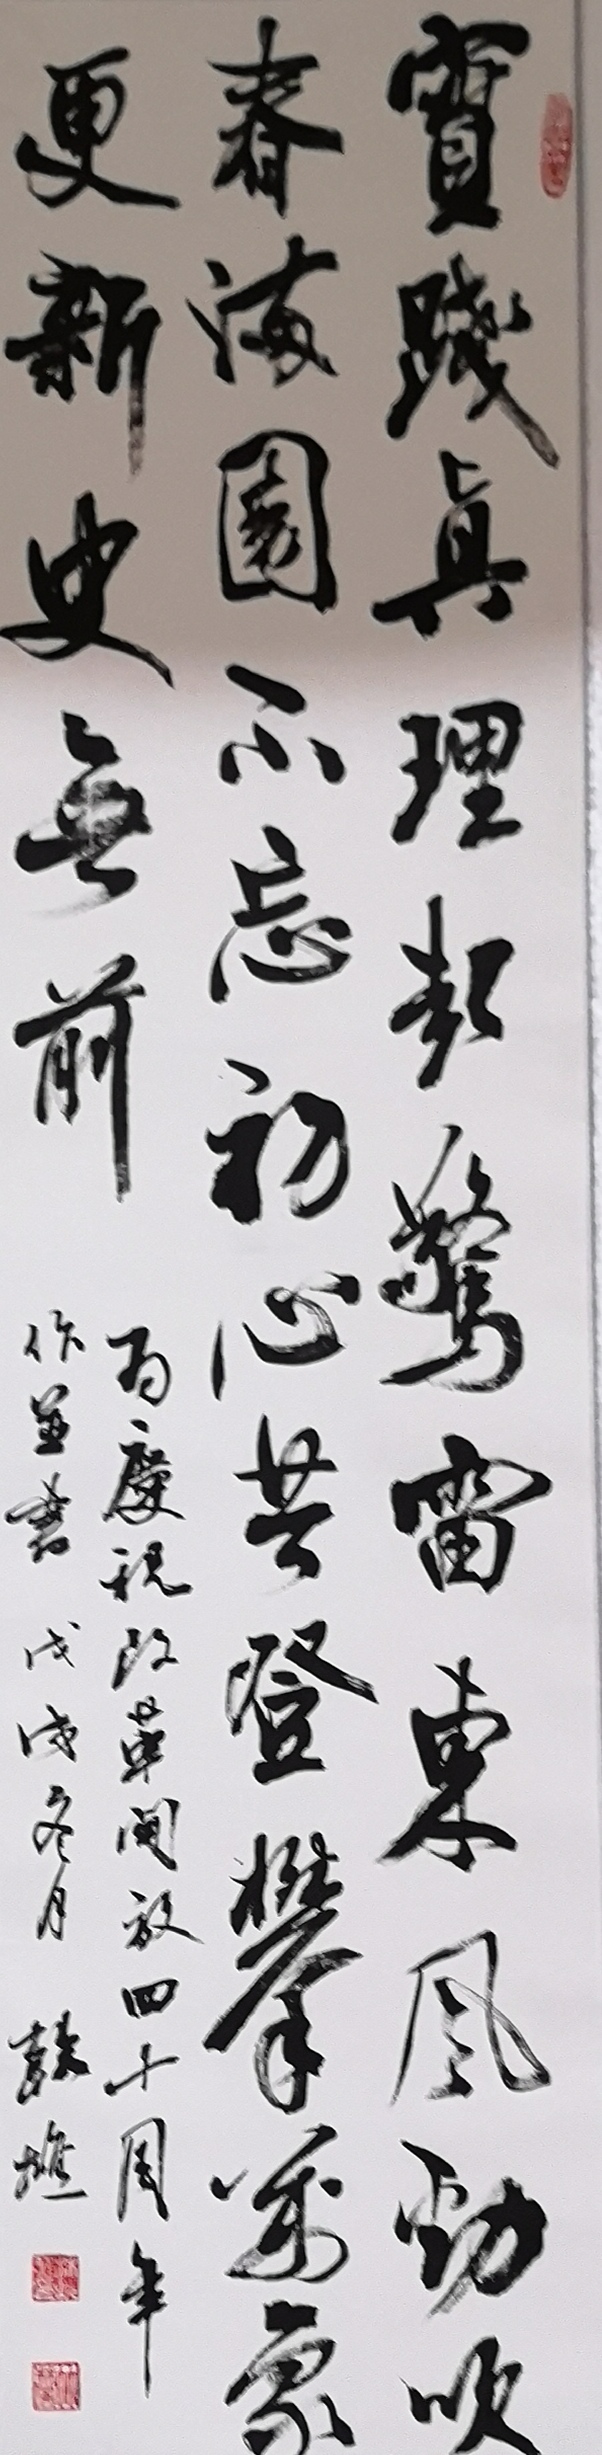 實踐真理驚雷東風勁吹
春滿園不忘初心共登攀萬象
更新史無前
為慶祝改革開放四十周年
作並書 戊戌冬月